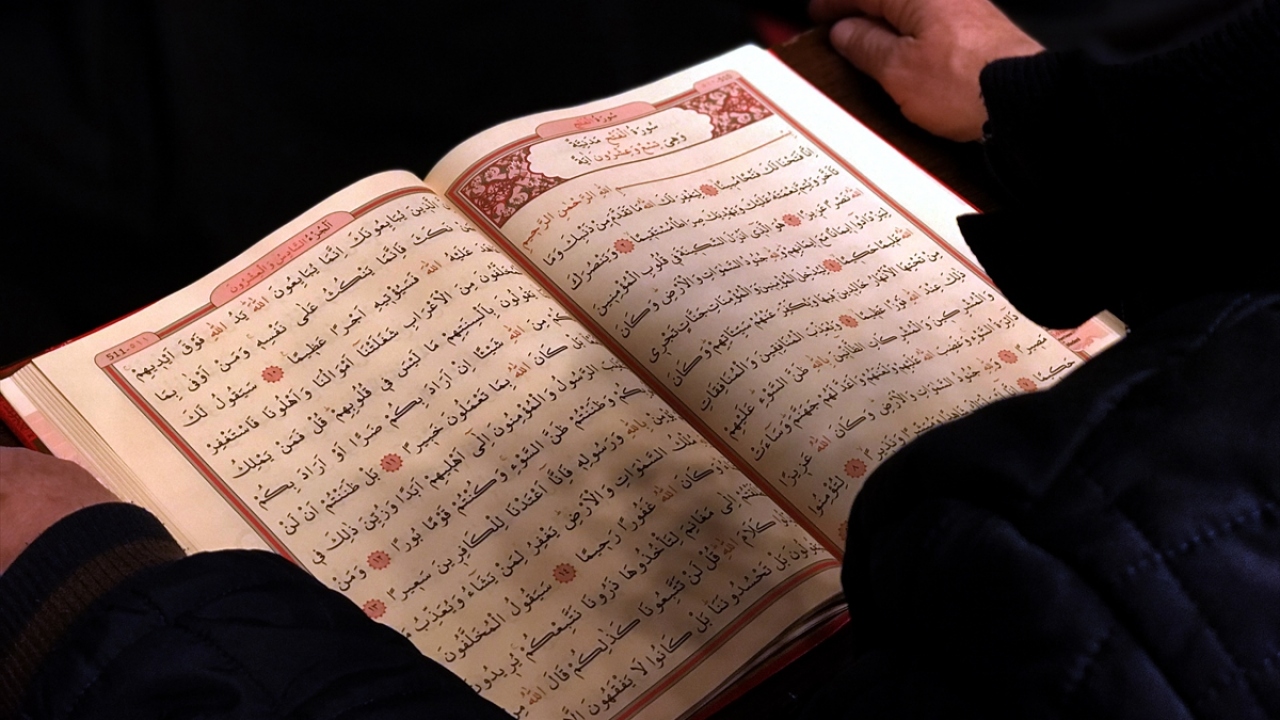 سُورَةُ الْفَتْحِ
سُورَةُ الْفَتْحِ مَدَنِيَّةٌ
وَهِيَ تِسْعٌ وَعِشْرُونَ اٰيَةً
اللهِ الرَّحْمٰنِ الرَّحِيمِ
اِنَّا فَتَحْنَا لَكَ فَتْحًا مُبِينًا لِيَغْفِرَ لَكَ اللهُ مَا تَقَدَّمَ مِنْ ذَنْبِكَ وَمَا
تَاَخَّرَ وَيُتِمَّ نِعْمَتَهُ عَلَيْكَ وَيَهْدِيَكَ صِرَاطًا مُسْتَقِيمًا وَيَنْصُرَكَ
اللهُ نَصْرًا عَزِيزًا هُوَ الَّذِي اَنْزَلَ السَّكِينَةَ فِي قُلُوبِ الْمُؤْمِنِينَ
لِيَزْدَادُوا اِيمَانًا مَعَ اِيمَانِهِمْ وَلِلّٰهِ جُنُودُ السَّمٰوَاتِ وَالْاَرْضِ وَكَانَ
اللهُ عَلِيمًا حَكِيمًا لِيُدْخِلَ الْمُؤْمِنِينَ وَالْمُؤْمِنَاتِ جَنَّاتٍ تَجْرِي
مِنْ تَحْتِهَا الْاَنْهَارُ خَالِدِينَ فِيهَا وَيُكَفِّرَ عَنْهُمْ سَيِّاٰتِهِمْ وَكَانَ
ذٰلِكَ عِنْدَ اللهِ فَوْزًا عَظِيمًا وَيُعَذِّبَ الْمُنَافِقِينَ وَالْمُنَافِقَاتِ
وَالْمُشْرِكِينَ وَالْمُشْرِكَاتِ الظَّانِّينَ بِاللهِ ظَنَّ السَّوْءِ عَلَيْهِمْ
دَائِرَةُ السَّوْءِ وَغَضِبَ اللهُ عَلَيْهِمْ وَلَعَنَهُمْ وَاَعَدَّ لَهُمْ جَهَنَّمَ وَسَاءَتْ
مَصِيرًا وَلِلّٰهِ جُنُودُ السَّمٰوَاتِ وَالْاَرْضِ وَكَانَ اللهُ عَزِيزًا
حَكِيمًا وَنَذِيرًا
لِتُؤْمِنُوا
اَلْجُزْءُ السَّادِسُ وَالْعِشْرُونَ
511
الَّذِينَ يُبَايِعُونَكَ اِنَّمَا يُبَايِعُونَ اللهَ يَدُ اللهِ فَوْقَ اَيْدِيهِمْ
نَكَثَ فَاِنَّمَا يَنْكُثُ عَلٰى نَفْسِهِ وَمَنْ اَوْفٰى بِمَا
عَلَيْهُ اللهَ فَسَيُؤْتِيهِ اَجْرًا عَظِيمًا ١٠ سَيَقُولُ لَكَ
الْمُخَلَّفُونَ مِنَ الْاَعْرَابِ شَغَلَتْنَا اَمْوَالُنَا وَاَهْلُونَا فَاسْتَغْفِرْ
يَقُولُونَ بِاَلْسِنَتِهِمْ مَا لَيْسَ فِي قُلُوبِهِمْ قُلْ فَمَنْ يَمْلِكُ
لَكُمْ مِنَ اللهِ شَيْئًا اِنْ اَرَادَ بِكُمْ ضَرًّا اَوْ اَرَادَ بِكُمْ
بَلْ كَانَ اللهُ بِمَا تَعْمَلُونَ خَبِيرًا ١١ بَلْ ظَنَنْتُمْ اَنْ لَنْ
يَنْقَلِبَ الرَّسُولُ وَالْمُؤْمِنُونَ اِلٰى اَهْلِيهِمْ اَبَدًا وَزُيِّنَ ذٰلِكَ فِي
وَظَنَنْتُمْ ظَنَّ السَّوْءِ وَكُنْتُمْ قَوْمًا بُورًا ١٢ وَمَنْ
يُؤْمِنْ بِاللهِ وَرَسُولِهِ فَاِنَّا اَعْتَدْنَا لِلْكَافِرِينَ سَعِيرًا ١٣
مُلْكُ السَّمٰوَاتِ وَالْاَرْضِ يَغْفِرُ لِمَنْ يَشَاءُ وَيُعَذِّبُ
وَكَانَ اللهُ غَفُورًا رَحِيمًا ١٤ سَيَقُولُ الْمُخَلَّفُونَ
اِلٰى مَغَانِمَ لِتَأْخُذُوهَا ذَرُونَا نَتَّبِعْكُمْ يُرِيدُونَ
كَلَامَ اللهِ قُلْ لَنْ تَتَّبِعُونَا كَذٰلِكُمْ قَالَ اللهُ مِنْ
بَلْ تَحْسُدُونَنَا بَلْ كَانُوا لَا يَفْقَهُونَ